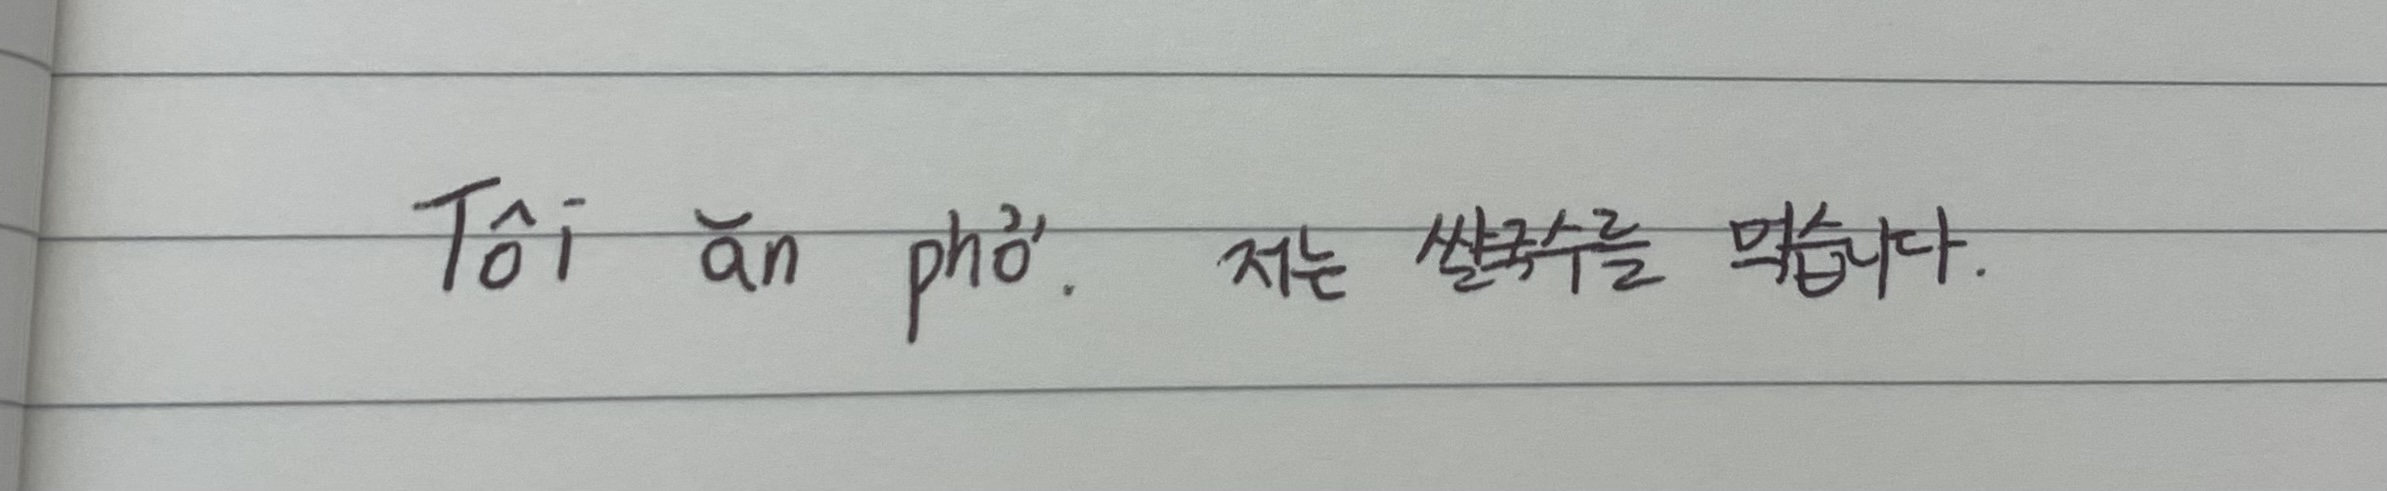 Tôi ăn phở. 저는 쌀국수를 먹습니다.